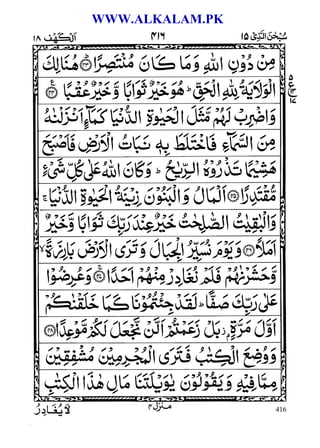 WWW.ALKALAM.PK
سُبْحٰنَ الَّذِیْۤ ۱۵
۴۱۶
اَلْکَهْف ۱۸
مِنْ دُوْنِ اللّٰهِ وَمَا كَانَ مُنْتَصِرًا ۝۴۳ هُنَالِكَ
الْوَلَايَةُ لِلّٰهِ الْحَقِّ ؕ هُوَ خَيْرٌ ثَوَابًا وَّخَيْرٌ عُقْبًا ۝۴۴
وَاضْرِبْ لَهُمْ مَّثَلَ الْحَيٰوةِ الدُّنْيَا كَمَآءٍ اَنْزَلْنٰهُ
مِنَ السَّمَآءِ فَاخْتَلَطَ بِهٖ نَبَاتُ الْاَرْضِ فَاَصْبَحَ
هَشِيْمًا تَذْرُوْهُ الرِّيٰحُ ؕ وَكَانَ اللّٰهُ عَلٰى كُلِّ شَيْءٍ
مُّقْتَدِرًا ۝۴۵ اَلْمَالُ وَالْبَنُوْنَ زِيْنَةُ الْحَيٰوةِ الدُّنْيَا ۚ
وَالْبٰقِيٰتُ الصّٰلِحٰتُ خَيْرٌ عِنْدَ رَبِّكَ ثَوَابًا وَّخَيْرٌ
اَمَلًا ۝۴۶ وَيَوْمَ نُسَيِّرُ الْجِبَالَ وَتَرَى الْاَرْضَ بَارِزَةً ۙ
وَّحَشَرْنٰهُمْ فَلَمْ نُغَادِرْ مِنْهُمْ اَحَدًا ۝۴۷ وَعُرِضُوْا
عَلٰى رَبِّكَ صَفًّا ؕ لَقَدْ جِئْتُمُوْنَا كَمَا خَلَقْنٰكُمْ
اَوَّلَ مَرَّةٍۭ ؗ بَلْ زَعَمْتُمْ اَلَّنْ نَّجْعَلَ لَكُمْ مَّوْعِدًا ۝۴۸
وَوُضِعَ الْكِتٰبُ فَتَرَى الْمُجْرِمِيْنَ مُشْفِقِيْنَ
مِمَّا فِيْهِ وَيَقُوْلُوْنَ يٰوَيْلَتَنَا مَالِ هٰذَا الْكِتٰبِ
منزل ۴
لَا يُغَادِرُ
416